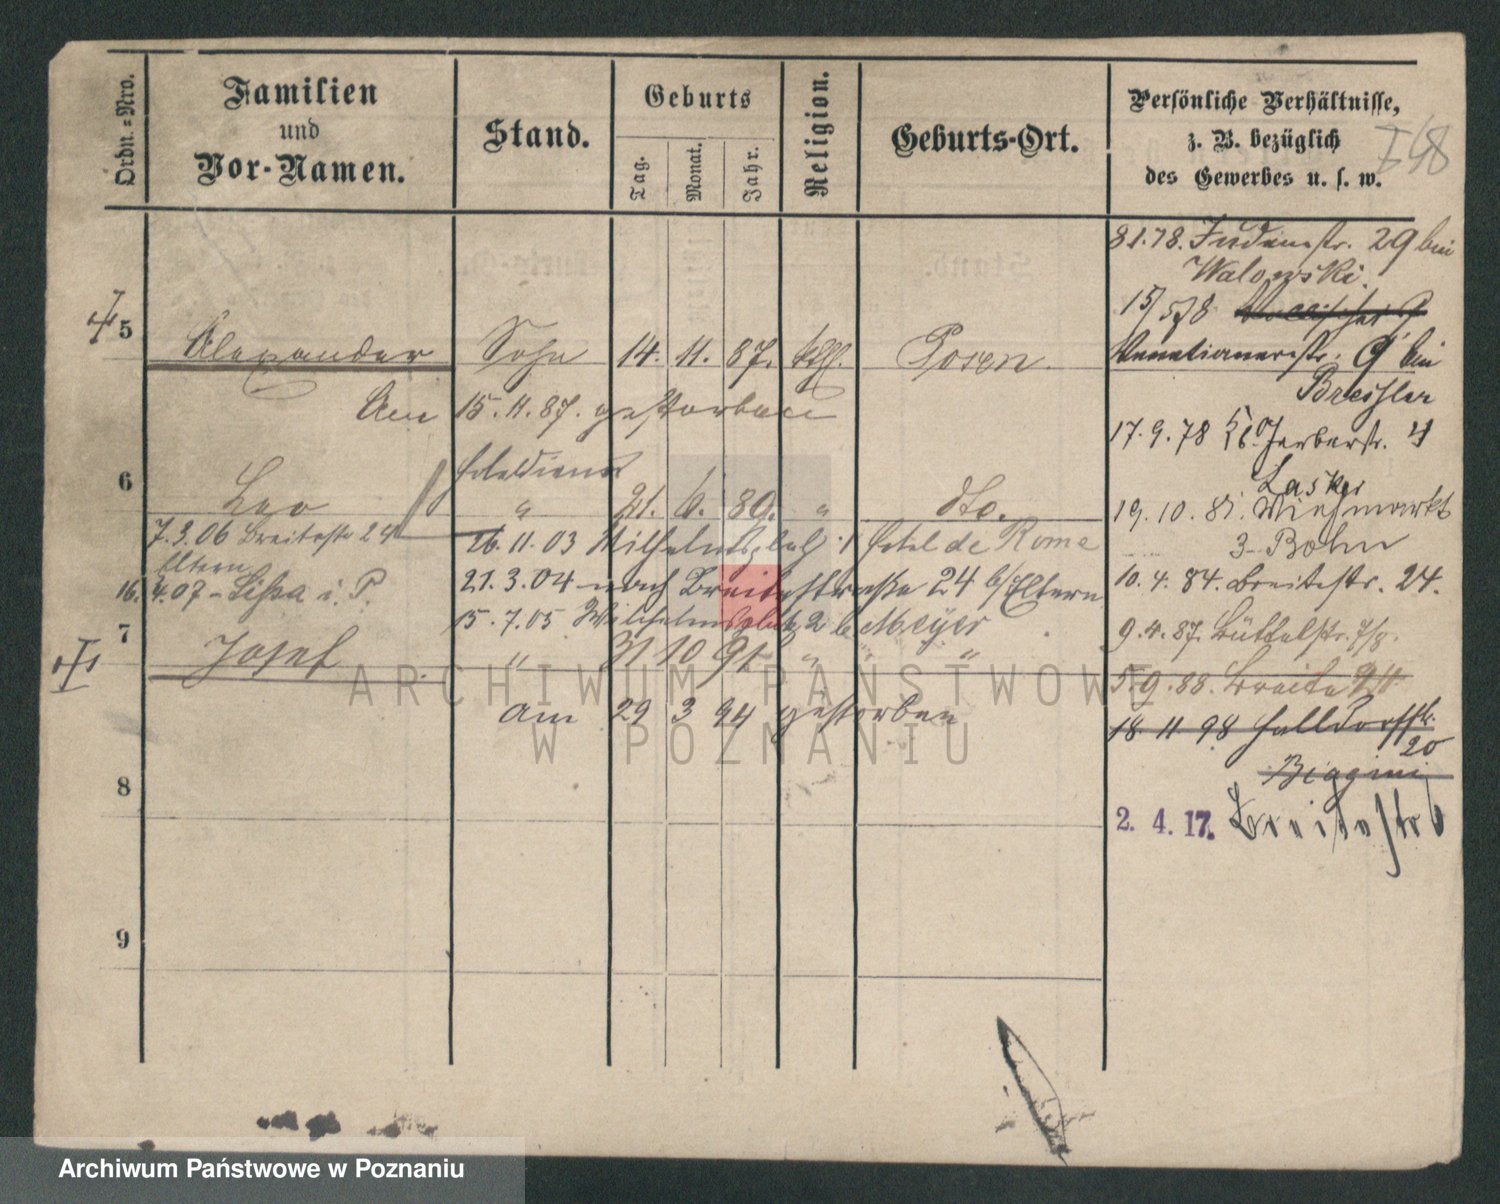 Ordn.-Nro.
Familien
und
Vor-Namen.
Stand.
Geburts
Tag.
Monat.
Jahr.
Religion.
Geburts-Ort.
Persönliche Verhältnisse,
z. B. bezüglich
des Gewerbes u. s. w.
5
Alexander Sohn 14. 11. 87. kth. Posen.
Am 15. 11. 87. gestorben
6
Hoteldiener
Leo " 21. 6. 89. " dto.
7.3.06 Breitestr 24
26.11.03 Wilhelmsplatz 1 Hotel de Rome
Eltern
16.4.07 - Lissa i. P.
21.3.04 nach Breitestrasse 24 b/Eltern
15.7.05 Wilhelmsplatz 2 b Meyer
7
Josef " 31 10 91 " "
am 29 3 94 gestorben
8
9
8.1.78. Judenstr. 29 bei
Walowski.
15/5 78
Venetianerstr. 9 bei
Breisler
17.9.78 Gerberstr. 4
Lasker
19.10.81. Viehmarkt
3 Bohn
10.4.84. Breitestr. 24.
9.4.87. Büttelstr. 7/8.
5.9.88. Breite 24
18 11 98 Halldorfstr.
20
Biagini
2. 4. 17. Breitestr 6
ARCHIWUM PAŃSTWOWE
W POZNANIU
Archiwum Państwowe w Poznaniu